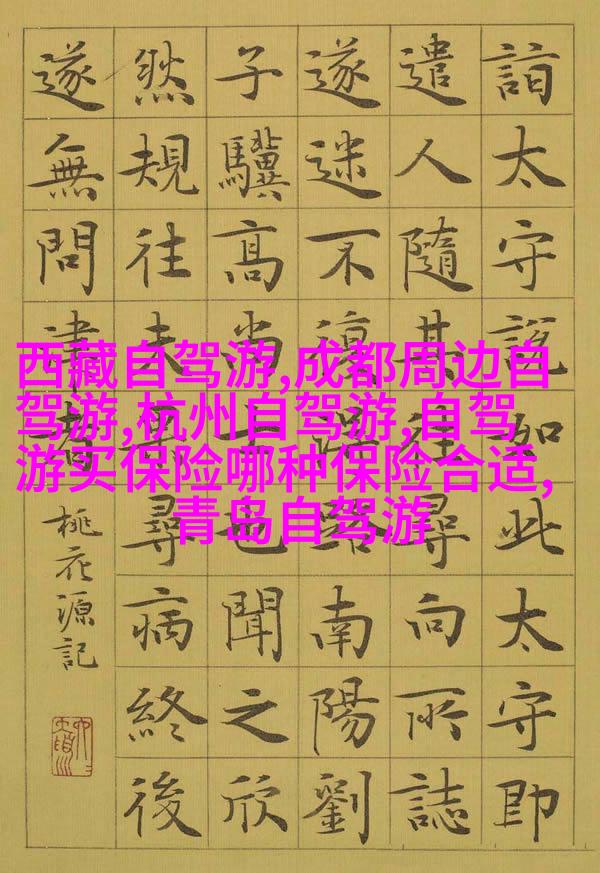 詣太守說如此太守即
遣人隨其往尋向所誌
遂迷不復得路南陽劉
子驥高尚士也聞之欣
然規往未果尋病終後
遂無問津者
桃花源記
西藏自驾游,成都周边自
驾游,杭州自驾游,自驾
游买保险哪种保险合适,
青岛自驾游